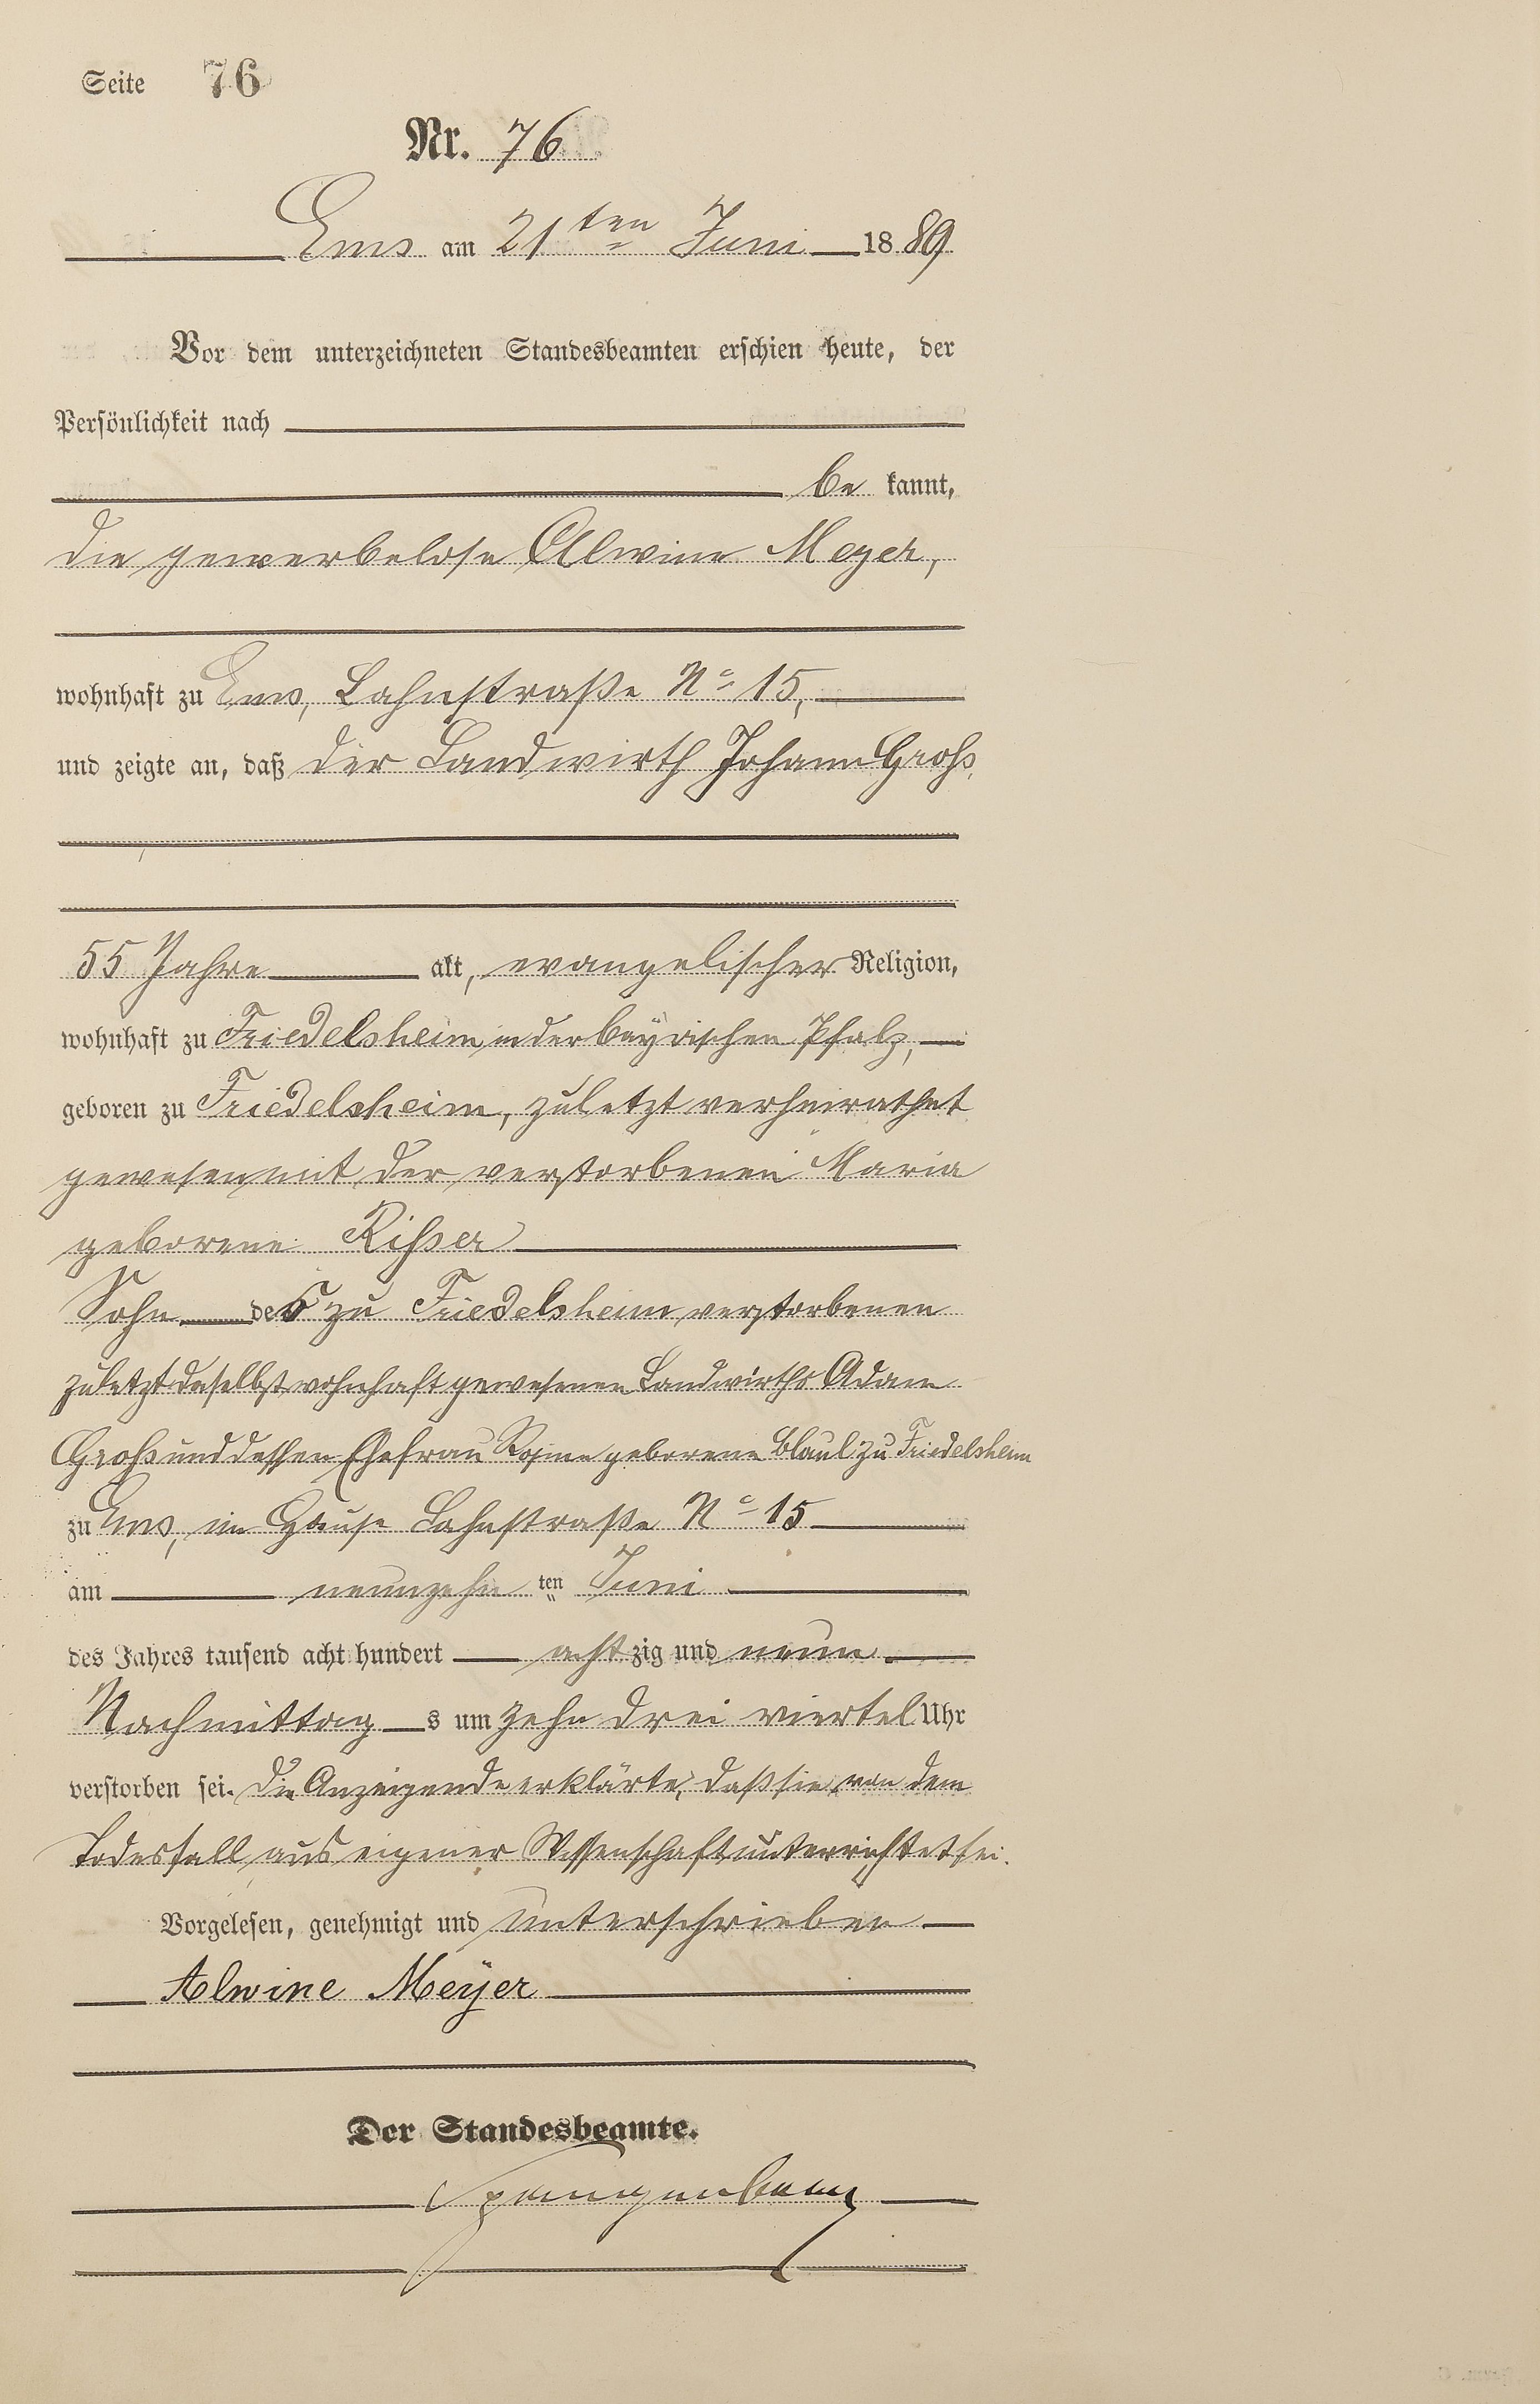 Seite 76
Nr. 76
Ems am 21ten Juni 1889
Vor dem unterzeichneten Standesbeamten erschien heute, der
Persönlichkeit nach
be kannt,
die gewerbelose Alwine Meyer,
wohnhaft zu Ems, Lahnstraße No 15,
und zeigte an, daß der Landwirth Johann Groß,
55 Jahre alt, evangelischer Religion,
wohnhaft zu Friedelsheim in der bayrischen Pfalz,
geboren zu Friedelsheim, zuletzt verheirathet
gewesen mit der verstorbenen Maria
geborene Risser
Sohn des zu Friedelsheim verstorbenen
zuletzt daselbst wohnhaft gewesenen Landwirths Adam
Groß und dessen Ehefrau Rosine geborene Blaul zu Friedelsheim
zu Ems, im Hause Lahnstraße No 15
am neunzehn ten Juni
des Jahres tausend acht hundert acht zig und neun
Nachmittag s um zehn drei viertel Uhr
verstorben sei. Die Anzeigende erklärte, daß sie von dem
Todesfall aus eigener Wissenschaft unterrichtet sei.
Vorgelesen, genehmigt und unterschrieben
Alwine Meyer
Der Standesbeamte.